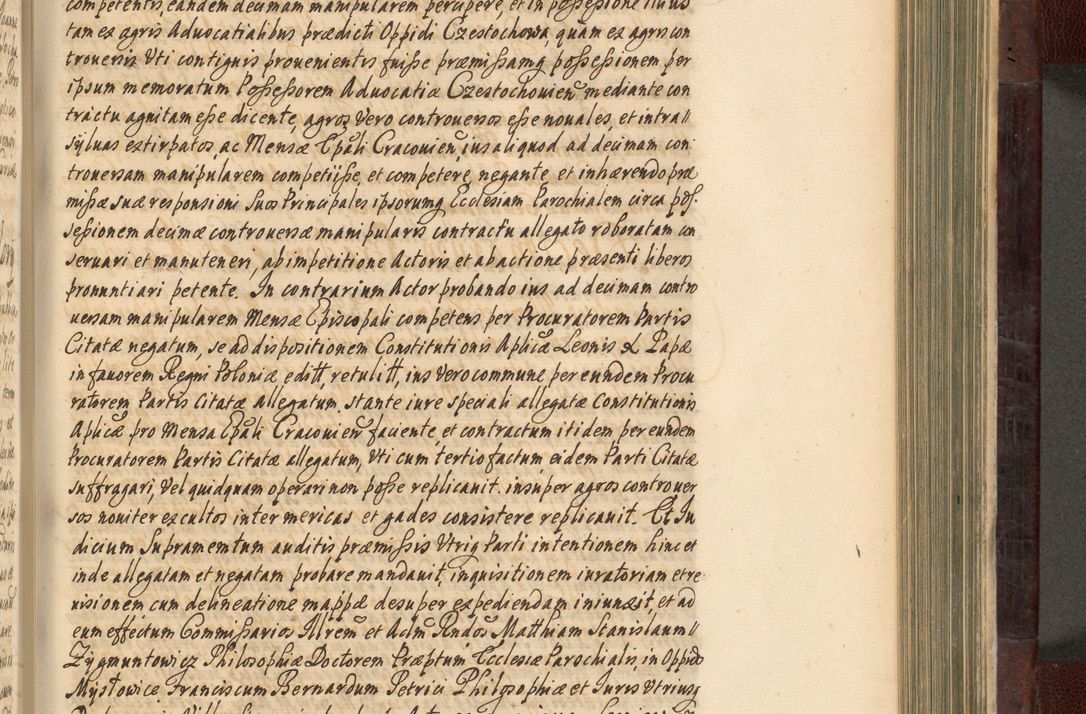 competentis, eandem decimam manipularem percipere, et in possessione illius
tam ex agris Advocatialibus prædicti Oppidi Czestochowa, quam ex agris con
troversis Uti contiguis provenientis fuisse præmissamq possessionem per
ipsum memoratum Possessorem Advocatiæ Czestochovien mediante con
tractu agnitam esse dicente, agros Vero controversos esse novales, et intra
sylvas extirpatos, ac Mensæ Epali Cracovien, ius aliquod ad decimam con
troversam manipularem competiisse, et competere, negante, et inhærendo præ
missæ suæ responsioni Suos Principales ipsorumq Ecclesiam Parochialem circa pos-
sessionem decimæ controversæ manipularis contractu allegato roboratam con
servari et manuteneri, ab impetitione Actoris et ab actione præsenti liberos
pronuntiari petente. In contrarium Actor probando ius ad decimam contro
versam manipularem Mensæ Episcopali competens per Procuratorem Partis
Citatæ negatum, se ad dispositionem Constitutionis Aplicæ Leonis X Papæ
in favorem Regni Poloniæ editt, retulitt, ius vero commune, per eundem Procu
ratorem Partis Citatæ allegatum, stante iure speciali allegatæ Constitutionis
Aplicæ pro Mensa Epali Cracovien faciente, et contractum itidem per eundem
Procuratorem Partis Citatæ allegatum, Uti cum tertio factum eidem Parti Citatæ
suffragari, Vel quidquam operari non posse replicavit. insuper agros controver
sos noviter excultos inter mericas et gades consistere replicavit. Et Iu
dicium Supramemtum auditis præmissis Utriq Parti intentionem hinc et
inde allegatam et negatam probare mandavit, inquisitionem iuratoriam et re
visionem cum delineatione mappæ desuper expediendam iniunxit, et ad
eum effectum Commissarios Illrem et Adm Rndos Matthiam Stanislaum
Zygmuntowicz Philosophiæ Doctorem Præptum Ecclesiæ Parochialis in Oppido
Mystowicæ Franciscum Bernardum Petrici Philosophiæ et Iuris Utriusq